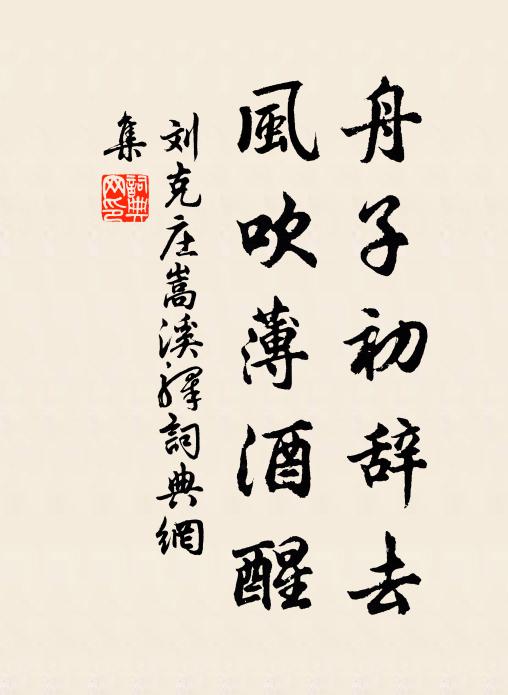 舟子初辞去
風吹薄酒醒
刘克庄嵩溪驛詞典網
集
詞典网印